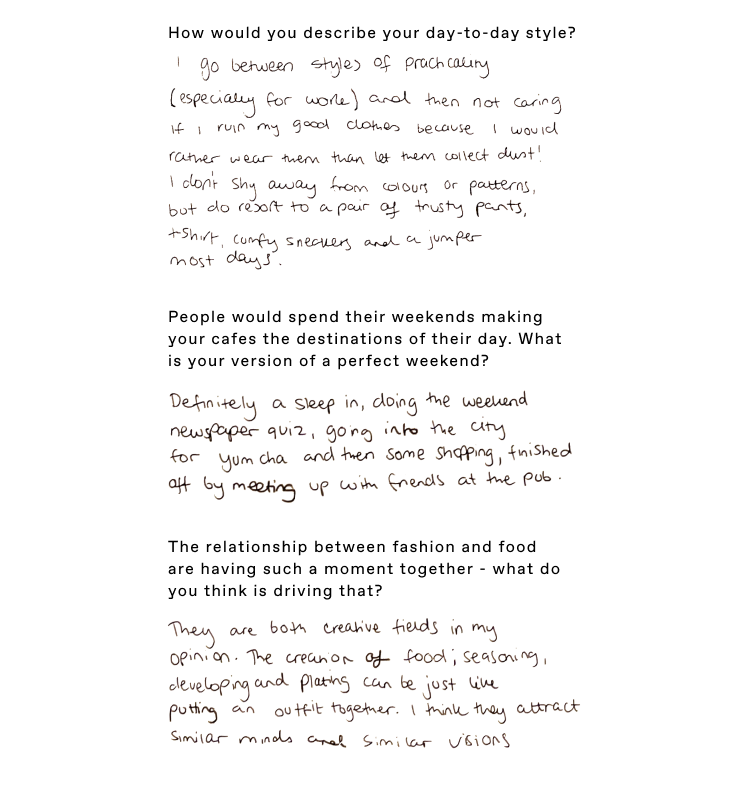 How would you describe your day-to-day style?
I go between styles of practicality
(especially for work) and then not caring
if I ruin my good clothes because I would
rather wear them than let them collect dust!
I don't shy away from colours or patterns,
but do resort to a pair of trusty pants,
tshirt, comfy sneakers and a jumper
most days.
People would spend their weekends making
your cafes the destinations of their day. What
is your version of a perfect weekend?
Definitely a sleep in, doing the weekend
newspaper quiz, going into the city
for yum cha and then some shopping, finished
off by meeting up with friends at the pub.
The relationship between fashion and food
are having such a moment together - what do
you think is driving that?
They are both creative fields in my
opinion. The creation of food; seasoning,
developing and plating can be just like
putting an outfit together. I think they attract
similar minds and similar visions